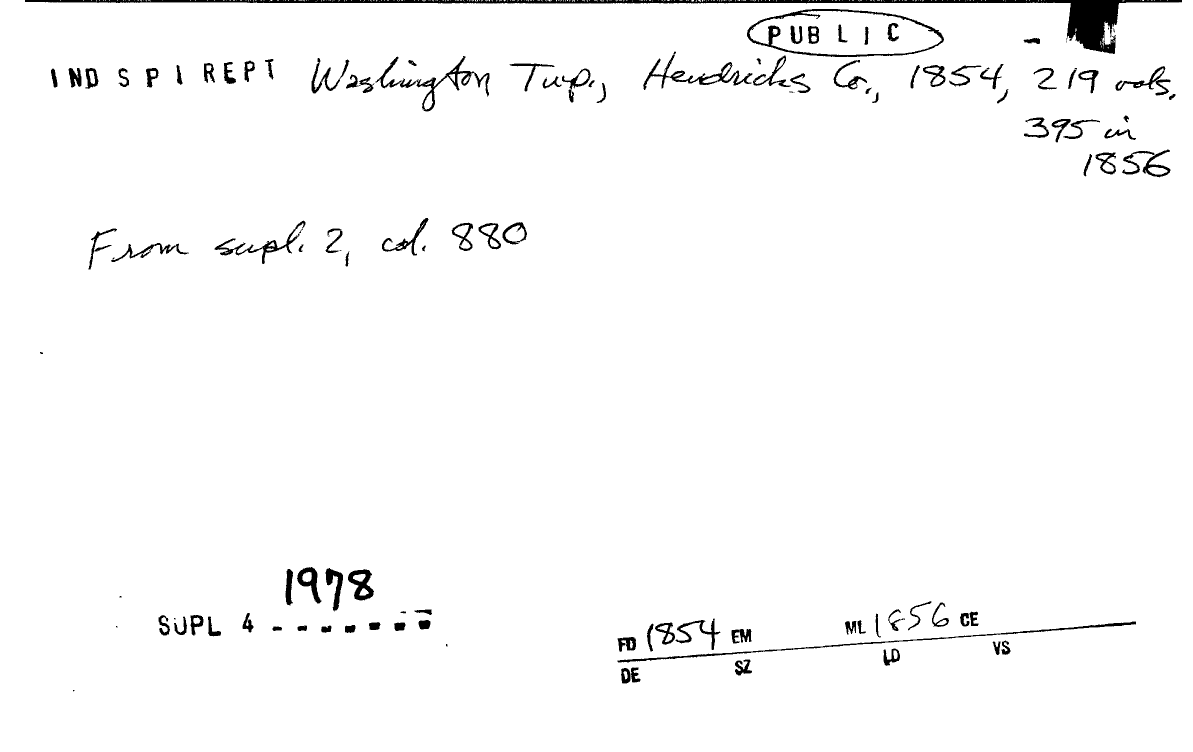 PUBLIC
INDSPIREPT Washington Twp., Hendricks Co., 1854, 219 vols.
395 in
1856
From supl. 2, col. 880
1978
SUPL 4 - - - - - - -
FD 1854 EM ML 1856 CE
DE SZ LD VS